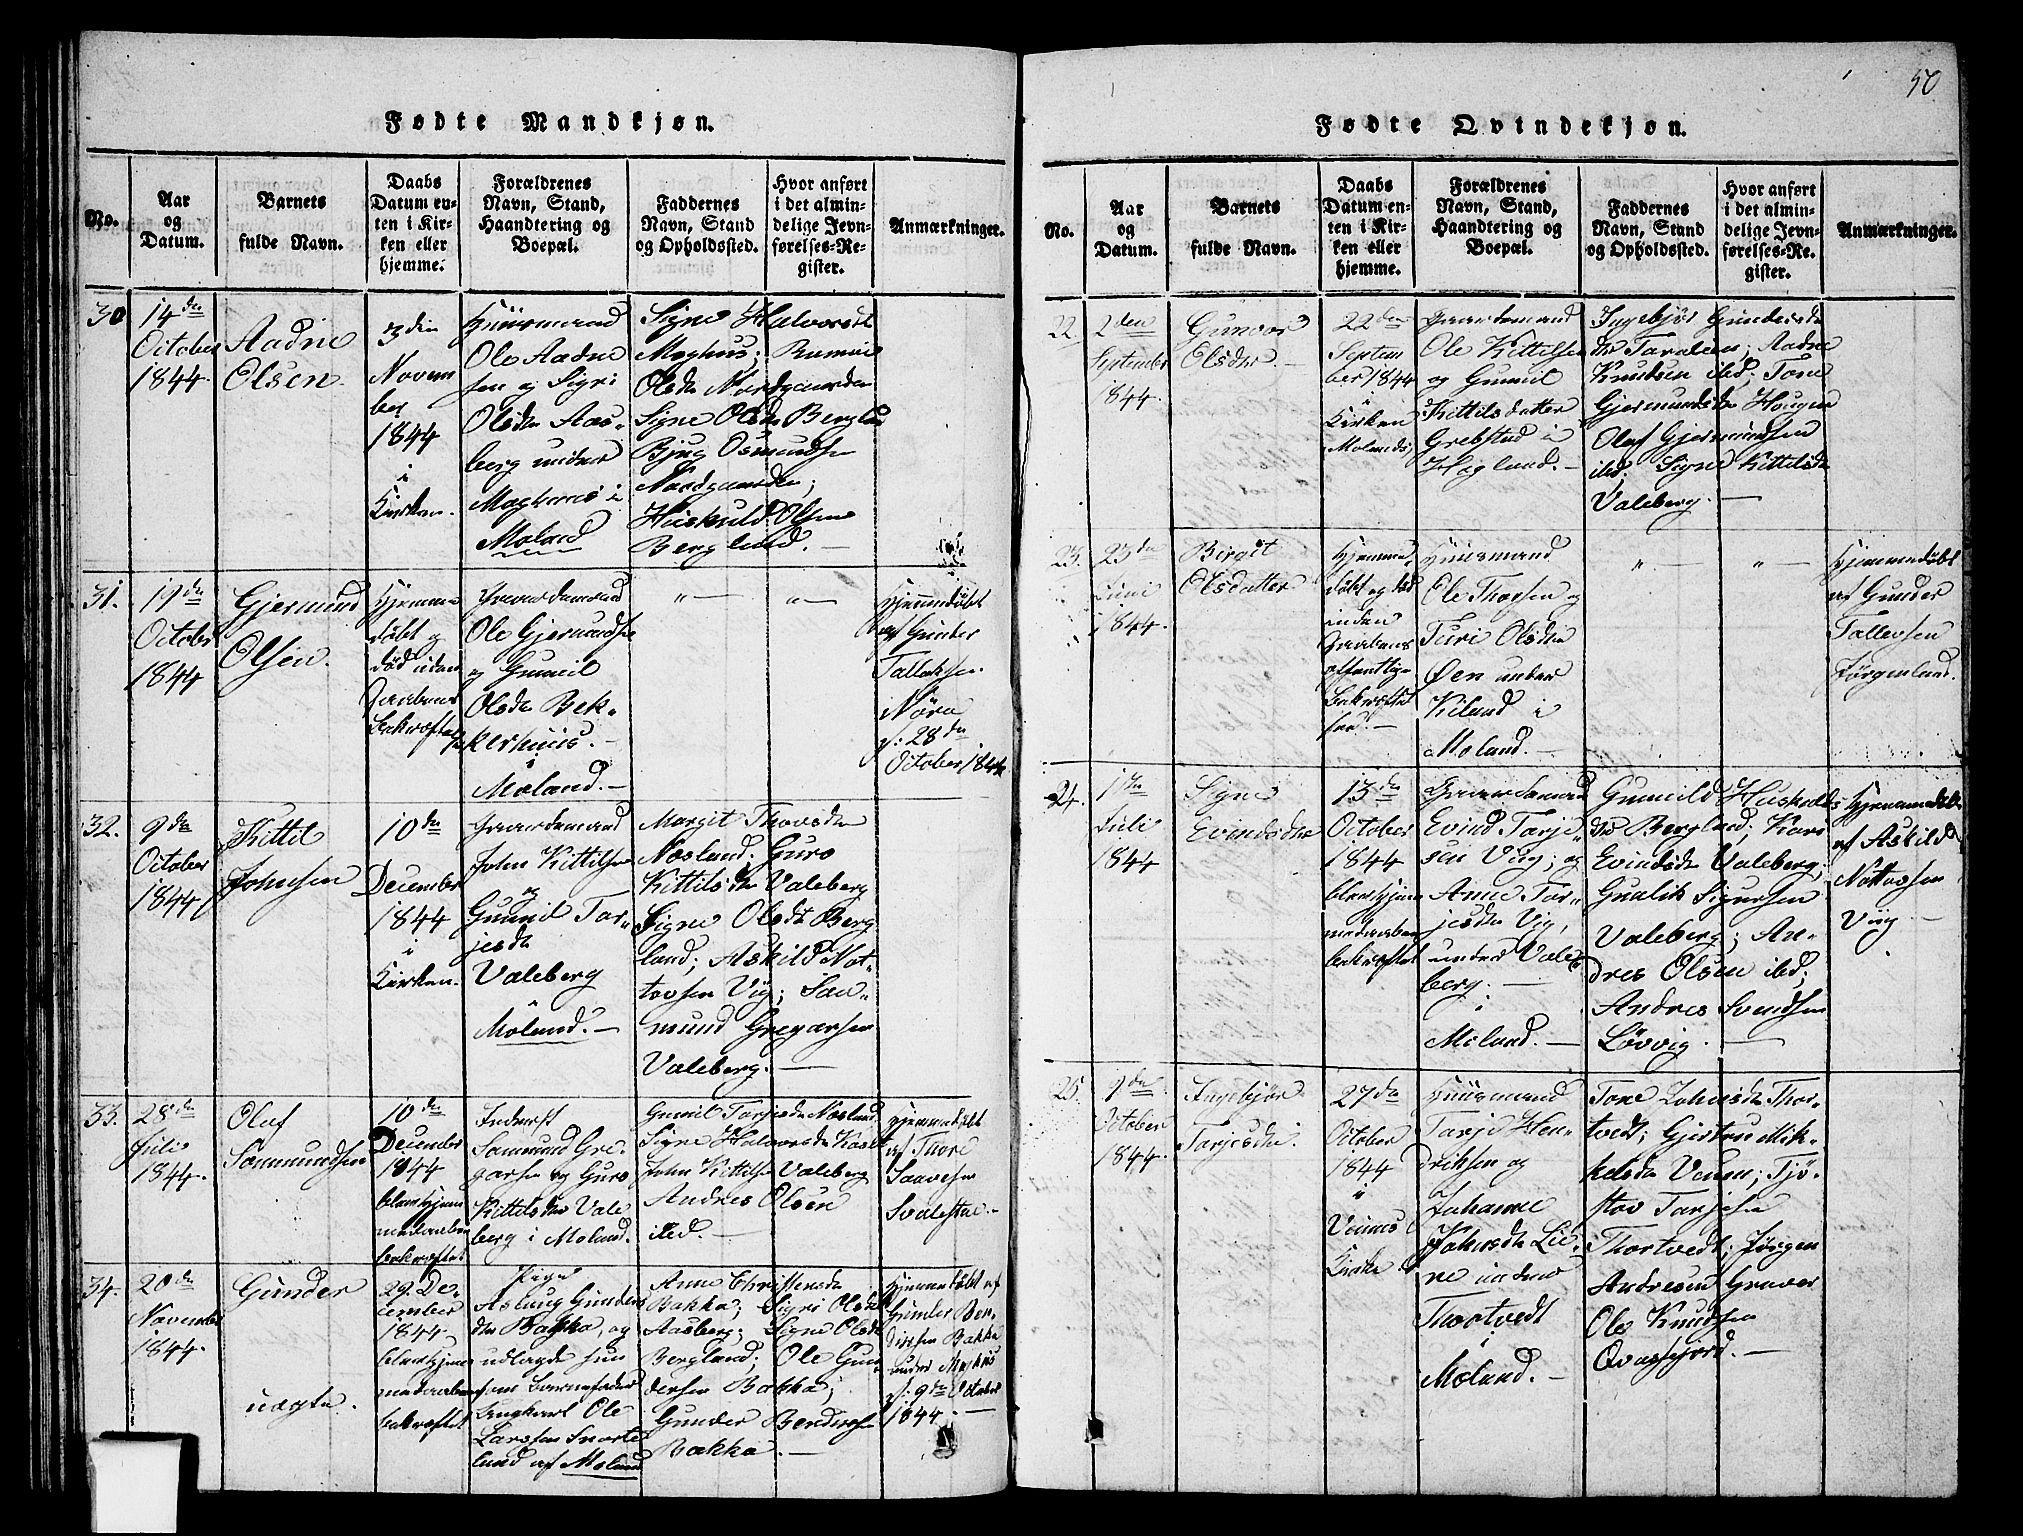 50
Fødte Mandkjøn.
No.
Aar
og
Datum.
Barnets
fulde Navn.
Daabs
Datum en-
ten i Kir-
ken eller
hjemme.
Forældrenes
Navn, Stand,
Haandtering og
Boepæl.
Faddernes
Navn, Stand
og Opholdssted.
Hvor anført
i det almin-
delige Jevn-
førelses-Re-
gister.
Anmærkninger.
30
14 den
October
1844.
Aadne
Olsen.
3 die
Novem
ber
1844
i
Kirken.
Huusmand
Ole Aadne
sen og Sigri
Olsdtr Aas-
berg under
Maghuus i
Moland
Signe Halvorsdt
Moghus;
Olsdtr Nordgaarden
Signe Olsdtr Berglnd
Bjug Osmundsen
Nordgaarden;
Huskuld Olsen
Bergland. —
31.
19 de
October
1844
Gjermund
Olsen.
Hjemme
døbt og
død uden
Daabens
Bekræftel
Gaardmand
Ole Gjermundsen
og Gunnil
Olsdtr Bek-
kerhuus. —
i
Moland. —
" —
" —
Hjemmedøbt
af Gunder
Tallaksen
Nöra
d: 28 de
October 1844
32.
9 de
October
1844
Kittil
Johnsen
10 de
December
1844
i
Kirken.
Gaardmand
John Kittilsen
og
Gunnild Tar-
jesdtr
Valeberg
i
Moland. —
Margit Thovsdtr
Næsland; Guro
Kittilsdtr Valeberg
Signe Olsdtr Berg
land; Askild Not-
tovsen Viig; San-
mund Gregarsen
Valeberg. —
33.
28 de
Juli
1844.
Olaf
Sanmundsen
10 de
December
1844
blev Hjem
medaaben
bekræftet
Inderst
Sanmund Gre-
garsen og Guro
Kittilsdtr Vale
berg i Moland.
Gunnil Tarjesdtr Næsland
Signe Halvorsdtr
John Kittilsen Valeberg
Andres Olsen
ibd. —
Hjemmedøbt
af Thore
Saavesen
Svalestue. —
34.
20 de
November
1844.
Gunder
uægte.
29. De-
cember
1844.
blev Hjem
medaaben
bekræftet
Pige
Aslaug Gunders
dtr Bakka, og
udlagde hun
som Barnefader
Ungkarl Ole
Larssen Svarte
lund af Moland
Anne Christensdtr
Bakka; Sigri Olsdtr
Aasberg; Signe Olsdtr
Bergland; Ole Gun-
dersen Bakka;
Gunder Bendixsen
Bakka. —
Hjemmedøbt af
Gunder Ben-
dixsen Bakka
under Maghus
d: 9 de
1844. —
Fødte Qvindekjøn.
No.
Aar
og
Datum.
Barnets
fulde Navn.
Daabs
Datum en-
ten i Kir-
ken eller
hjemme.
Forældrenes
Navn, Stand,
Haandtering og
Boepæl.
Faddernes
Navn, Stand
og Opholdssted.
Hvor anført
i det almin-
delige Jevn-
førelses-Re-
gister.
Anmærkninger.
22.
2 den
September
1844.
Gunvor
Olsdtr. —
22 de
Septem
ber 1844
i
Kirken
Molands
Gaardmand
Ole Kittilsen
og Gunnil
Kittilsdatter
Grebstad i
Høgland. —
Ingebjør Gunders
dtr Taraleen; Aadne
Knudsen ibd; Tone
Gjermundsdtr Hougen
Olaf Gjermundsen
ibd; Signe Kittilsdtr
Valeberg. —
23.
23 de
Juni
1844.
Birgit
Olsdatter
Hjemme
døbt og død
inden
Daabens
offentlige
Bekræftel
se. —
Huusmand
Ole Thorsen og
Turi Olsdtr
Øen under
Kiland i
Moland. —
" —
" —
Hjemmedøbt
af Gunder
Tallevsen
Jørgenlund.
24.
1 de
Juli
1844
Signe
Evindsdtr
13 de
October
1844
blev Hjem
medaaben
bekræftet
Gaardmand
Evind Tarje-
sen Viig, og
Anne Tar-
jesdtr Vig,
under Vale
berg. —
i
Moland. —
Gunnild Huskolds
dtr Bergland; Kari
Evindsdtr Valeberg;
Gunlik Sigursen
Valeberg; An-
dres Olsen ibd;
Andres Svendsen
Løvvig. —
Hjemmedøbt
af Askild
Nottovsen
Viig. —
25.
9 de
October
1844.
Ingebjør
Tarjesdtr.
27 de
October
1844
i
Veums
Kirke
Huusmand
Tarje Hen-
driksen og
Johanne
Johnsdtr Lie-
ne under
Thortvedt
i
Moland. —
Tone Johnsdtr Thor-
tvedt; Gjertru Mik-
kelsdtr Veum; Tjø-
stov Tarjesen
Thortvedt; Jørgen
Andresen Graver
Ole Knudsen
Qvassfjord. —